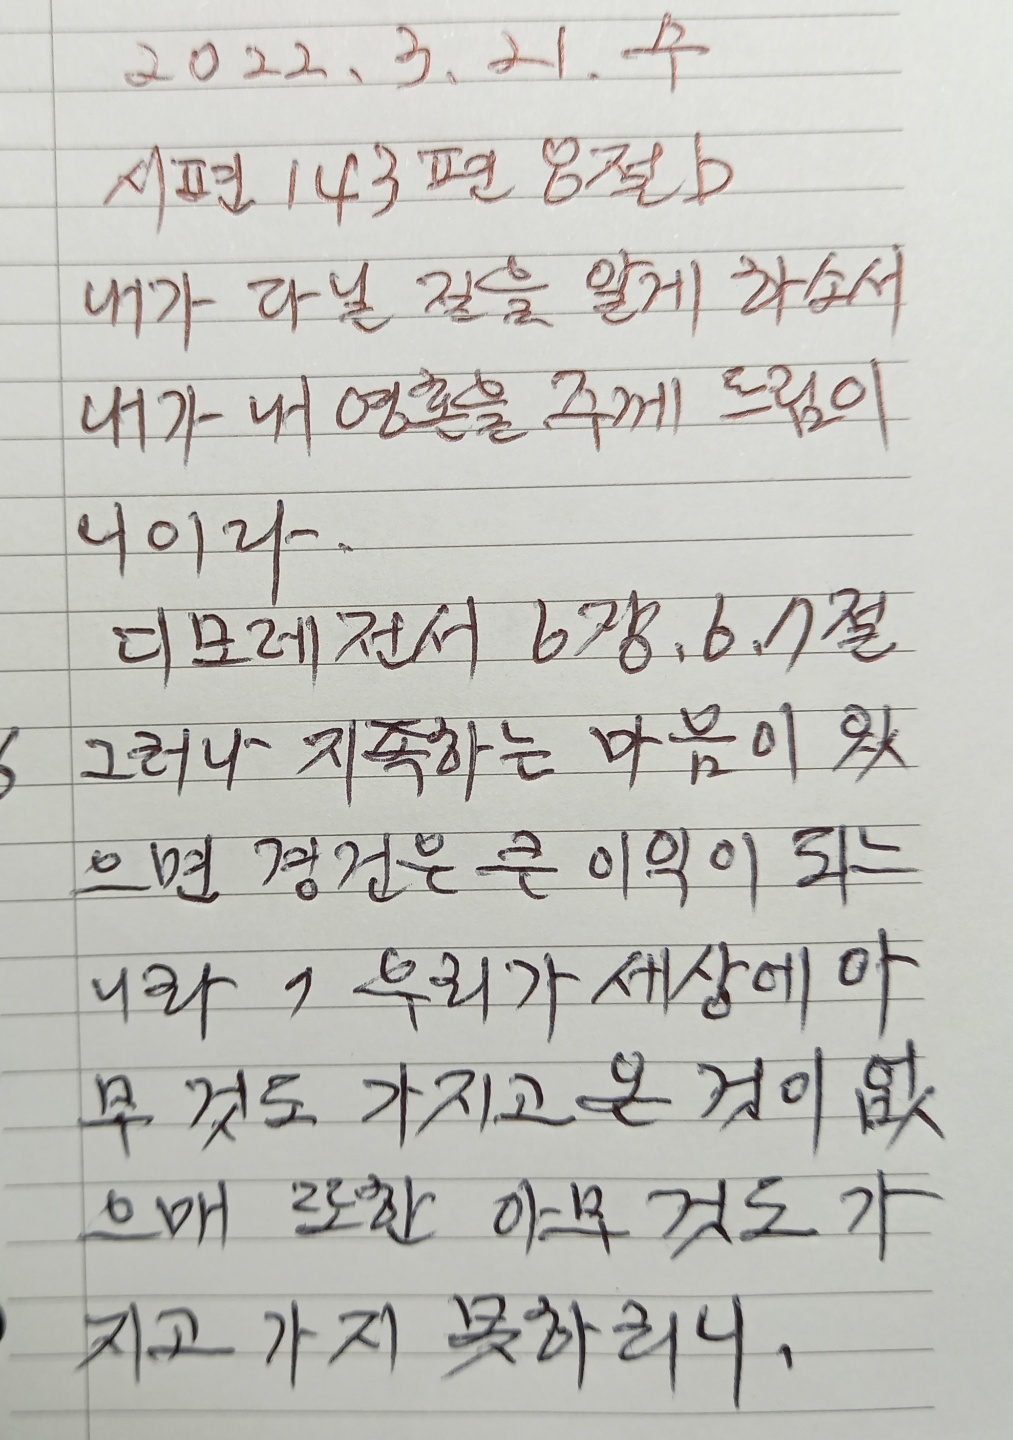 2022. 3. 21. 수
시편 143편 8절b
내가 다닐 길을 알게 하소서
내가 내 영혼을 주께 드림이
니이다.
디모데전서 6장. 6. 7절
6 그러나 지족하는 마음이 있
으면 경건은 큰 이익이 되느
니라 7 우리가 세상에 아
무 것도 가지고 온 것이 없
으매 또한 아무 것도 가
지고 가지 못하리니.